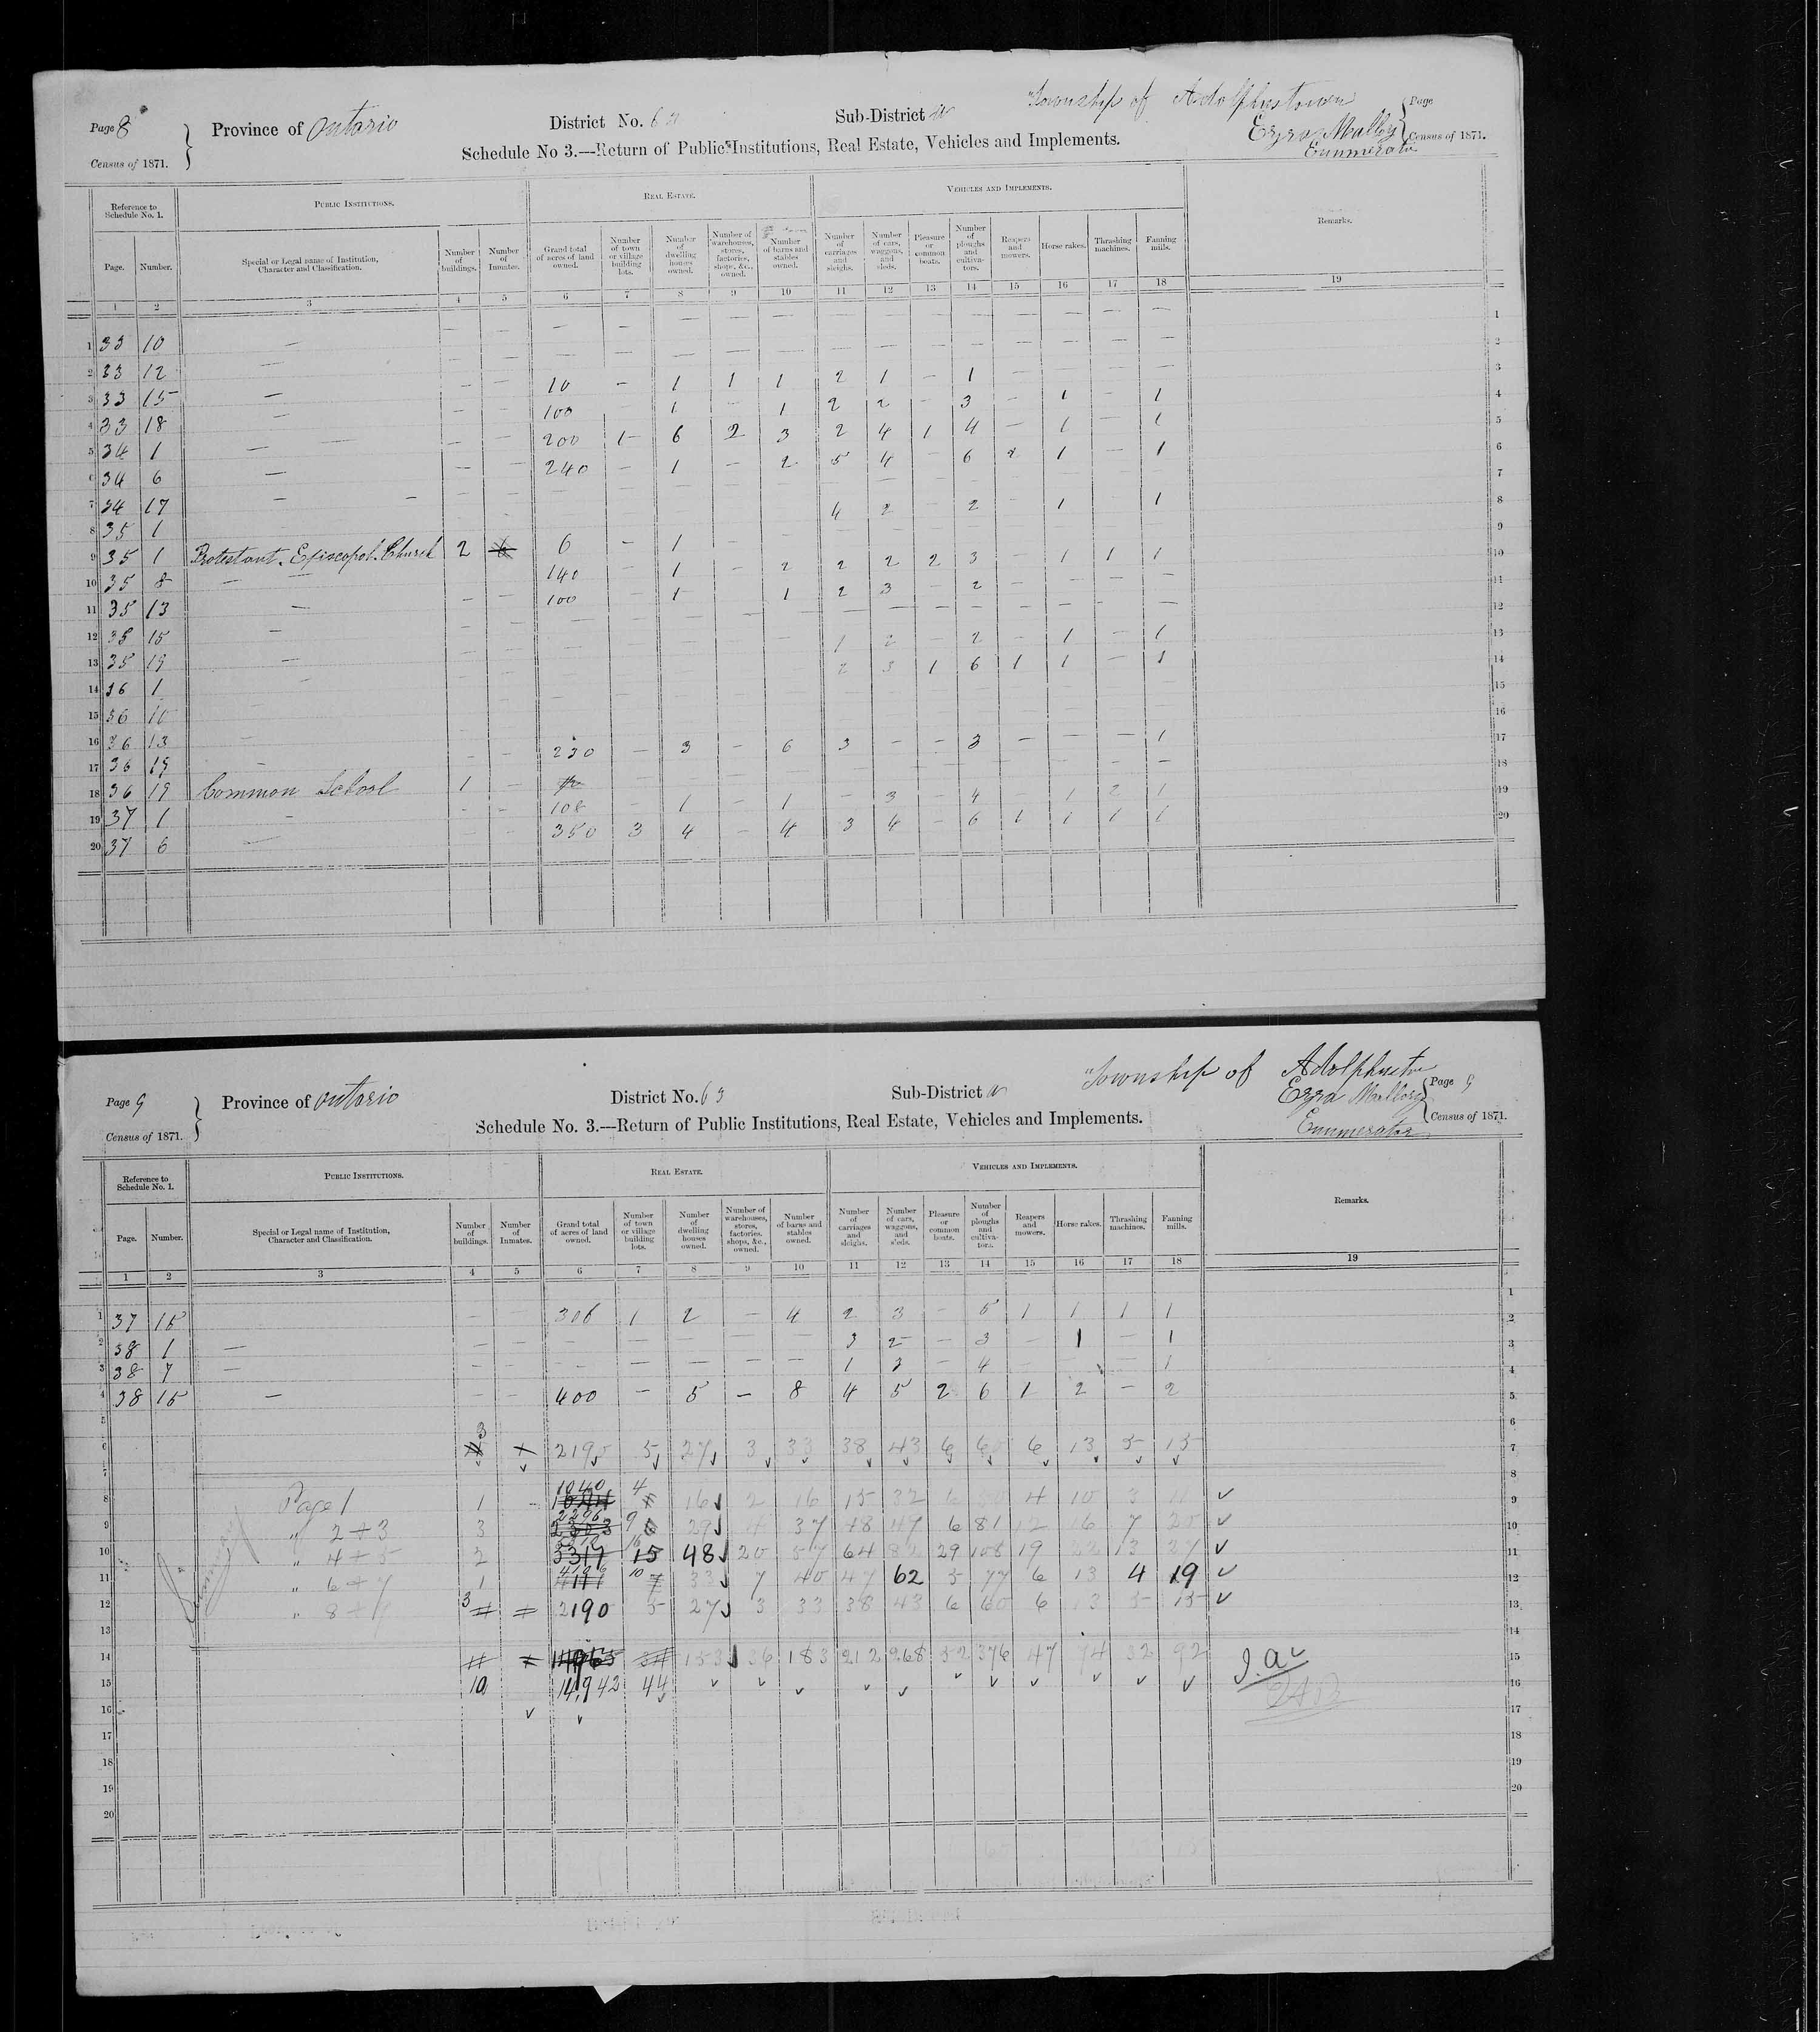 Page 8
Census of 1871.
Province of Ontario
District No. 63
Sub-District a
Township of Adolphustown
Ezra Mallory
Enumerator
Page
Census of 1871.
Schedule No 3.—Return of Public Institutions, Real Estate, Vehicles and Implements.
Reference to Schedule No. 1.
PUBLIC INSTITUTIONS.
REAL ESTATE.
VEHICLES AND IMPLEMENTS.
Remarks.
Page. Number. Special or Legal name of Institution, Character and Classification. Number of buildings. Number of Inmates. Grand total of acres of land owned. Number of town or village building lots. Number of dwelling houses owned. Number of warehouses, stores, factories, shops, &c., owned. Number of barns and stables owned. Number of carriages and sleighs. Number of cars, waggons, and sleds. Pleasure or common boats. Number of ploughs and cultivators. Reapers and mowers. Horse rakes. Thrashing machines. Fanning mills.
1 2 3 4 5 6 7 8 9 10 11 12 13 14 15 16 17 18 19
1 33 10 — — — — — — — — — — — — — — — — 1
2 33 12 — — — — — — — — — — — — — — — — 2
3 33 15 — — — 10 — 1 1 1 2 1 — 1 — — — — 3
4 33 18 — — — 100 — 1 — 1 2 2 — 3 — 1 — 1 4
5 34 1 — — — 200 1 6 2 3 2 4 1 4 — 1 1 5
6 34 6 — — — 240 — 1 — 2 5 4 — 6 2 1 — 1 6
7 34 17 — — — — — — — — — — — — — — — — 7
8 35 1 — — — — — — 4 2 — 2 — 1 1 8
9 35 1 Protestant Episcopal Church 2 6 — 1 — — — — — — — — — 9
10 35 8 — — 140 — 1 — 2 2 2 2 3 — 1 1 1 10
11 35 13 — — — 100 — 1 1 2 3 — 2 — — — — 11
12 35 15 — — — — — — — — — — — — — — — — 12
13 35 19 — — — — — — — — 1 2 — 2 — 1 — 1 13
14 36 1 — — — — — — — — 2 3 1 6 1 1 — 1 14
15 36 10 — — — — — — — — — — — — — — — — 15
16 36 13 — — — — — — — — — — — — — — — — 16
17 36 19 — — — 230 — 3 — 6 3 — — 3 — — — 1 17
18 36 19 Common School 1 — — — — — — — — — — — — — 18
19 37 1 — — — 108 — 1 — 1 — 3 — 4 — 1 2 1 19
20 37 6 — — — 350 3 4 — 4 3 4 — 6 1 1 1 1 20
Page 9
Census of 1871.
Province of Ontario
District No. 63
Sub-District a
Township of Adolphustn
Ezra Mallory
Enumerator
Page 9
Census of 1871.
Schedule No. 3.—Return of Public Institutions, Real Estate, Vehicles and Implements.
Reference to Schedule No. 1.
PUBLIC INSTITUTIONS.
REAL ESTATE.
VEHICLES AND IMPLEMENTS.
Remarks.
Page. Number. Special or Legal name of Institution, Character and Classification. Number of buildings. Number of Inmates. Grand total of acres of land owned. Number of town or village building lots. Number of dwelling houses owned. Number of warehouses, stores, factories, shops, &c., owned. Number of barns and stables owned. Number of carriages and sleighs. Number of cars, waggons, and sleds. Pleasure or common boats. Number of ploughs and cultivators. Reapers and mowers. Horse rakes. Thrashing machines. Fanning mills.
1 2 3 4 5 6 7 8 9 10 11 12 13 14 15 16 17 18 19
1 37 15 — — 306 1 2 — 4 2 3 — 5 1 1 1 1
2 38 1 — — — — — — — — 3 2 — 3 — 1 — 1
3 38 7 — — — — — — — — 1 3 — 4 — — 1
4 38 15 — — — 400 — 5 — 8 4 5 2 6 1 2 — 2
3
2190 5 27 3 33 38 43 6 60 6 13 5 15
1040 4
Page 1 1 16 2 16 15 32 6 4 10 3
2296 9
" 2+3 3 29 4 37 48 47 6 81 12 16 7 20
16
" 4+5 2 5317 15 48 20 57 64 82 29 108 19 22 13 27
10
" 6+7 1 33 7 40 47 62 5 77 6 13 4 19
" 8+9 3 2190 5 27 3 33 38 43 6 60 6 13 5 15
Summary
11 14965 34 153 36 183 212 268 52 376 47 74 32 92
10 14,942 44